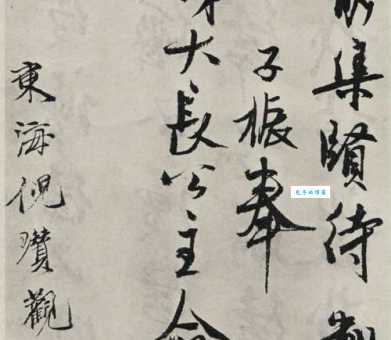 集賢待制
子振奉
大長公主命
東海倪瓚觀